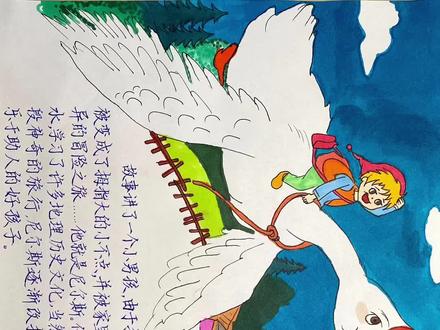 故事讲了一个小男孩,由于
被变成了拇指大的小不点,并被家
异的冒险之旅……他就是尼尔斯,
水学习了许多地理历史文化,当然
段神奇的旅行,尼尔斯逐渐改
乐于助人的好孩子。